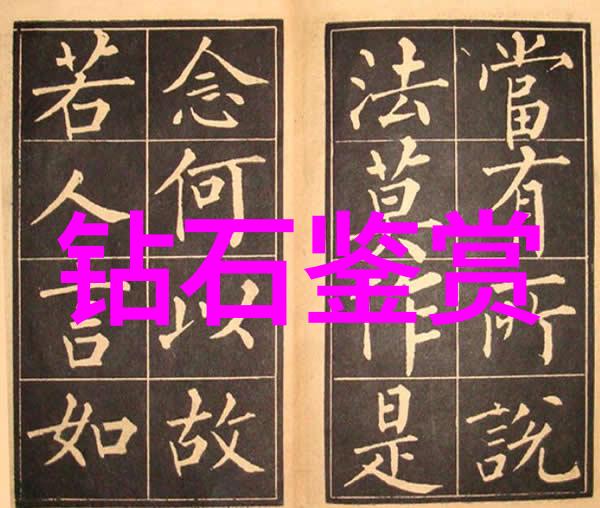 當有所說
法莫作是
念何以故
若人言如
钻石鉴赏